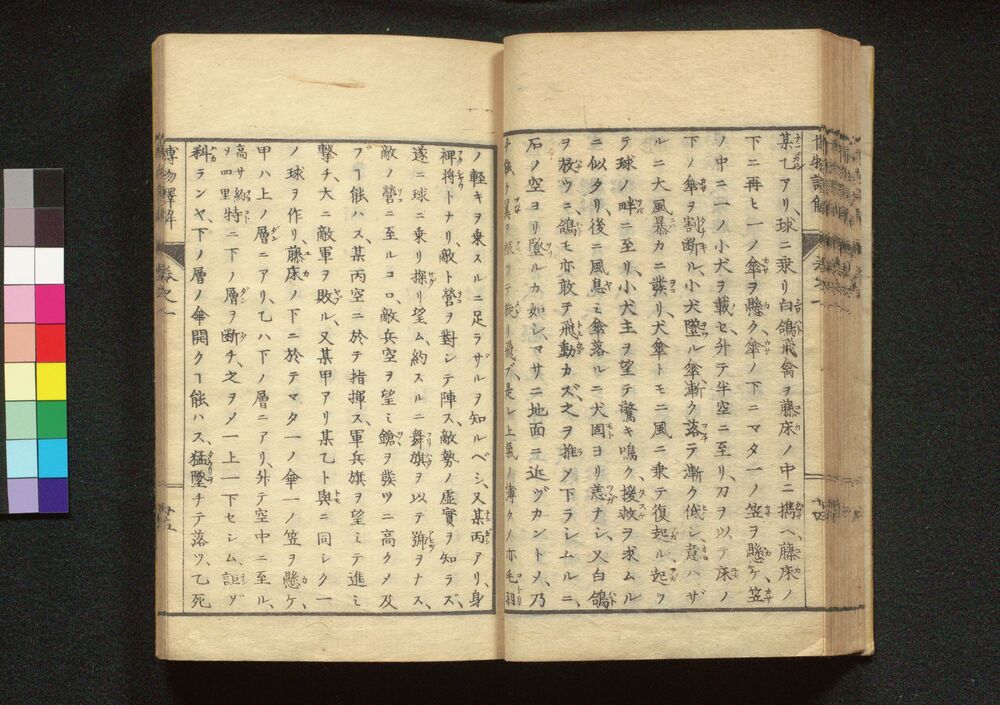 某乙アリ、球ニ乗リ白鴿飛禽ヲ藤床ノ中ニ携ヘ、藤床ノ
下ニ再ヒ一ノ傘ヲ懸ク、傘ノ下ニマタ一ノ笠ヲ懸ケ、笠
ノ中ニ一ノ小犬ヲ載セ、升テ半空ニ至リ、刀ヲ以テ床ノ
下ノ傘ヲ割断ル、小犬墜ル傘漸ク落テ漸ク低シ、意ハザ
ルニ大風暴カニ発リ、犬傘トモニ風ニ乗テ復起ル、起ツ
テ球ノ畔ニ至リ、小犬主ヲ望テ驚キ鳴ク、援救ヲ求ムル
ニ似タリ、後ニ風息ミ傘落ルニ犬固ヨリ恙ナシ、又白鴿
ヲ放ウニ、鴿モ亦敢テ飛動カズ、之ヲ推ノ下ラシムルニ、
石ノ空ヨリ墜ルカ如シ、マサニ地面ニ近ヅカントメ、乃
チ能ク翼ヲ振ツテ旋リ飛ブ、是レ上気ノ薄クノ亦毛羽
廿四
ノ軽キヲ乗スルニ足ラザルヲ知ルベシ、又某丙アリ、身
裨将トナリ、敵ト営ヲ對シテ陣ス、敵勢ノ虚實ヲ知ラズ、
遂ニ球ニ乗リ探リ望ム、約スルニ舞旗ヲ以テ號ヲナス、
敵ノ營ニ至ルコロ、敵兵空ヲ望ミ鎗ヲ発ツニ高クメ及
ブヿ能ハス、某丙空ニ於テ指揮ス、軍兵旗ヲ望ミテ進ミ
撃チ、大ニ敵軍ヲ敗ル、又某甲アリ某乙ト與ニ同シク一
ノ球ヲ作リ、藤床ノ下ニ於テマタ一ノ傘一ノ笠ヲ懸ケ、
甲ハ上ノ層ニアリ、乙ハ下ノ層ニアリ、升テ空中ニ至ル、
高サ約ヲ四里特ニ下ノ層ヲ断チ、之ヲメ一上一下セシム、詎ゾ
料ランヤ、下ノ層ノ傘開クヿ能ハス、猛墜チテ落ツ、乙死
博物譯解
巻之一
廿五